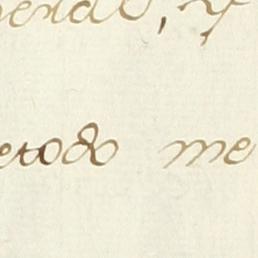 endo, y
etodo me